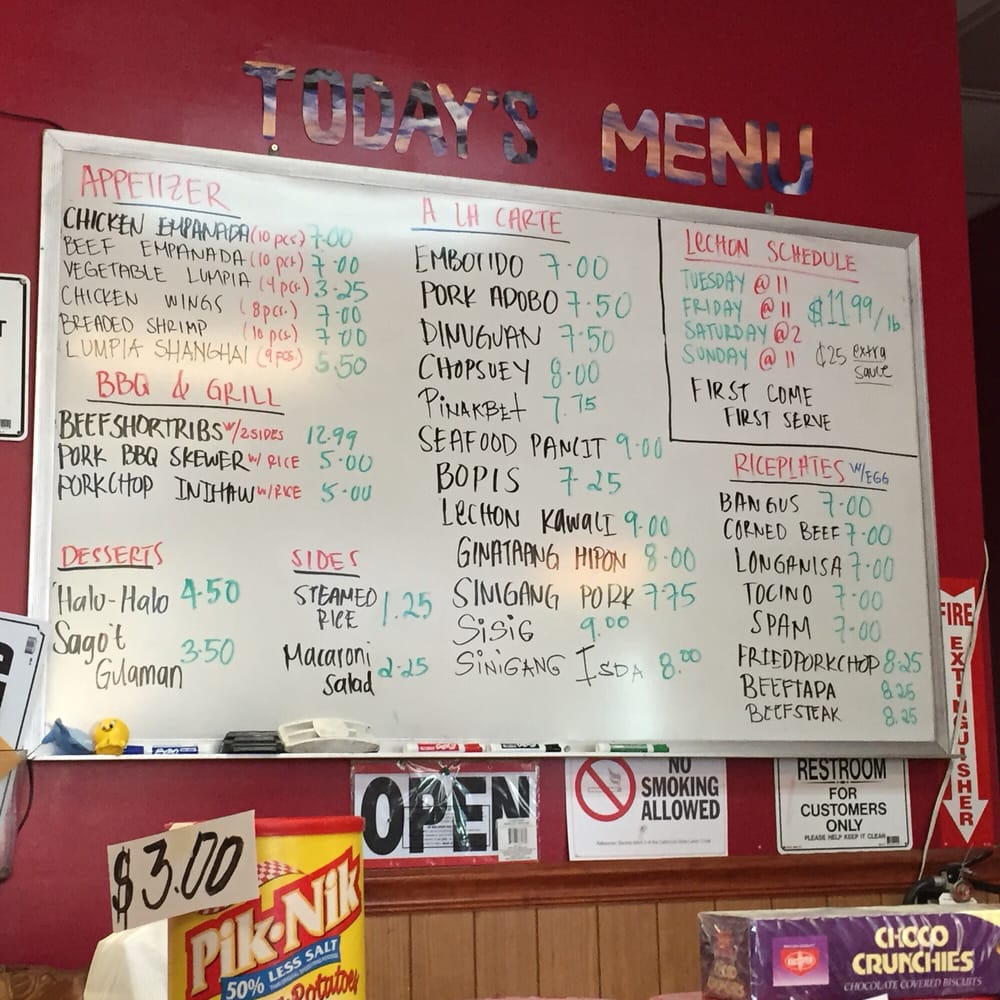 TODAY'S MENU
APPETIZER
CHICKEN EMPANADA (10 pcs.) 7.00
BEEF EMPANADA (10 pcs.) 7.00
VEGETABLE LUMPIA (4 pcs.) 3.25
CHICKEN WINGS (8 pcs.) 7.00
BREADED SHRIMP (10 pcs.) 7.00
LUMPIA SHANGHAI (9 pcs.) 5.50
BBQ & GRILL
BEEFSHORTRIBS w/2SIDES 12.99
PORK BBQ SKEWER w/ RICE 5.00
PORKCHOP INIHAW w/RICE 5.00
DESSERTS
Halo-Halo 4.50
Sago't
Gulaman 3.50
SIDES
STEAMED
RICE 1.25
Macaroni
Salad 2.25
A LA CARTE
EMBOTIDO 7.00
PORK ADOBO 7.50
DINUGUAN 7.50
CHOPSUEY 8.00
PINAKBET 7.75
SEAFOOD PANCIT 9.00
BOPIS 7.25
LECHON KAWALI 9.00
GINATAANG HIPON 8.00
SINIGANG PORK 7.75
SISIG 9.00
SINIGANG ISDA 8.00
LECHON SCHEDULE
TUESDAY @ 11
FRIDAY @ 11 $11.99/lb
SATURDAY @ 2
SUNDAY @ 11 ¢25 extra
sauce
FIRST COME
FIRST SERVE
RICEPLATES W/EGG
BANGUS 7.00
CORNED BEEF 7.00
LONGANISA 7.00
TOCINO 7.00
SPAM 7.00
FRIEDPORKCHOP 8.25
BEEFTAPA 8.25
BEEFSTEAK 8.25
OPEN
NO
SMOKING
ALLOWED
RESTROOM
FOR
CUSTOMERS
ONLY
PLEASE HELP KEEP IT CLEAN
FIRE EXTINGUISHER
$3.00
Pik-Nik
50% LESS SALT
Potatoes
CHOCO
CRUNCHIES
CHOCOLATE COVERED BISCUITS